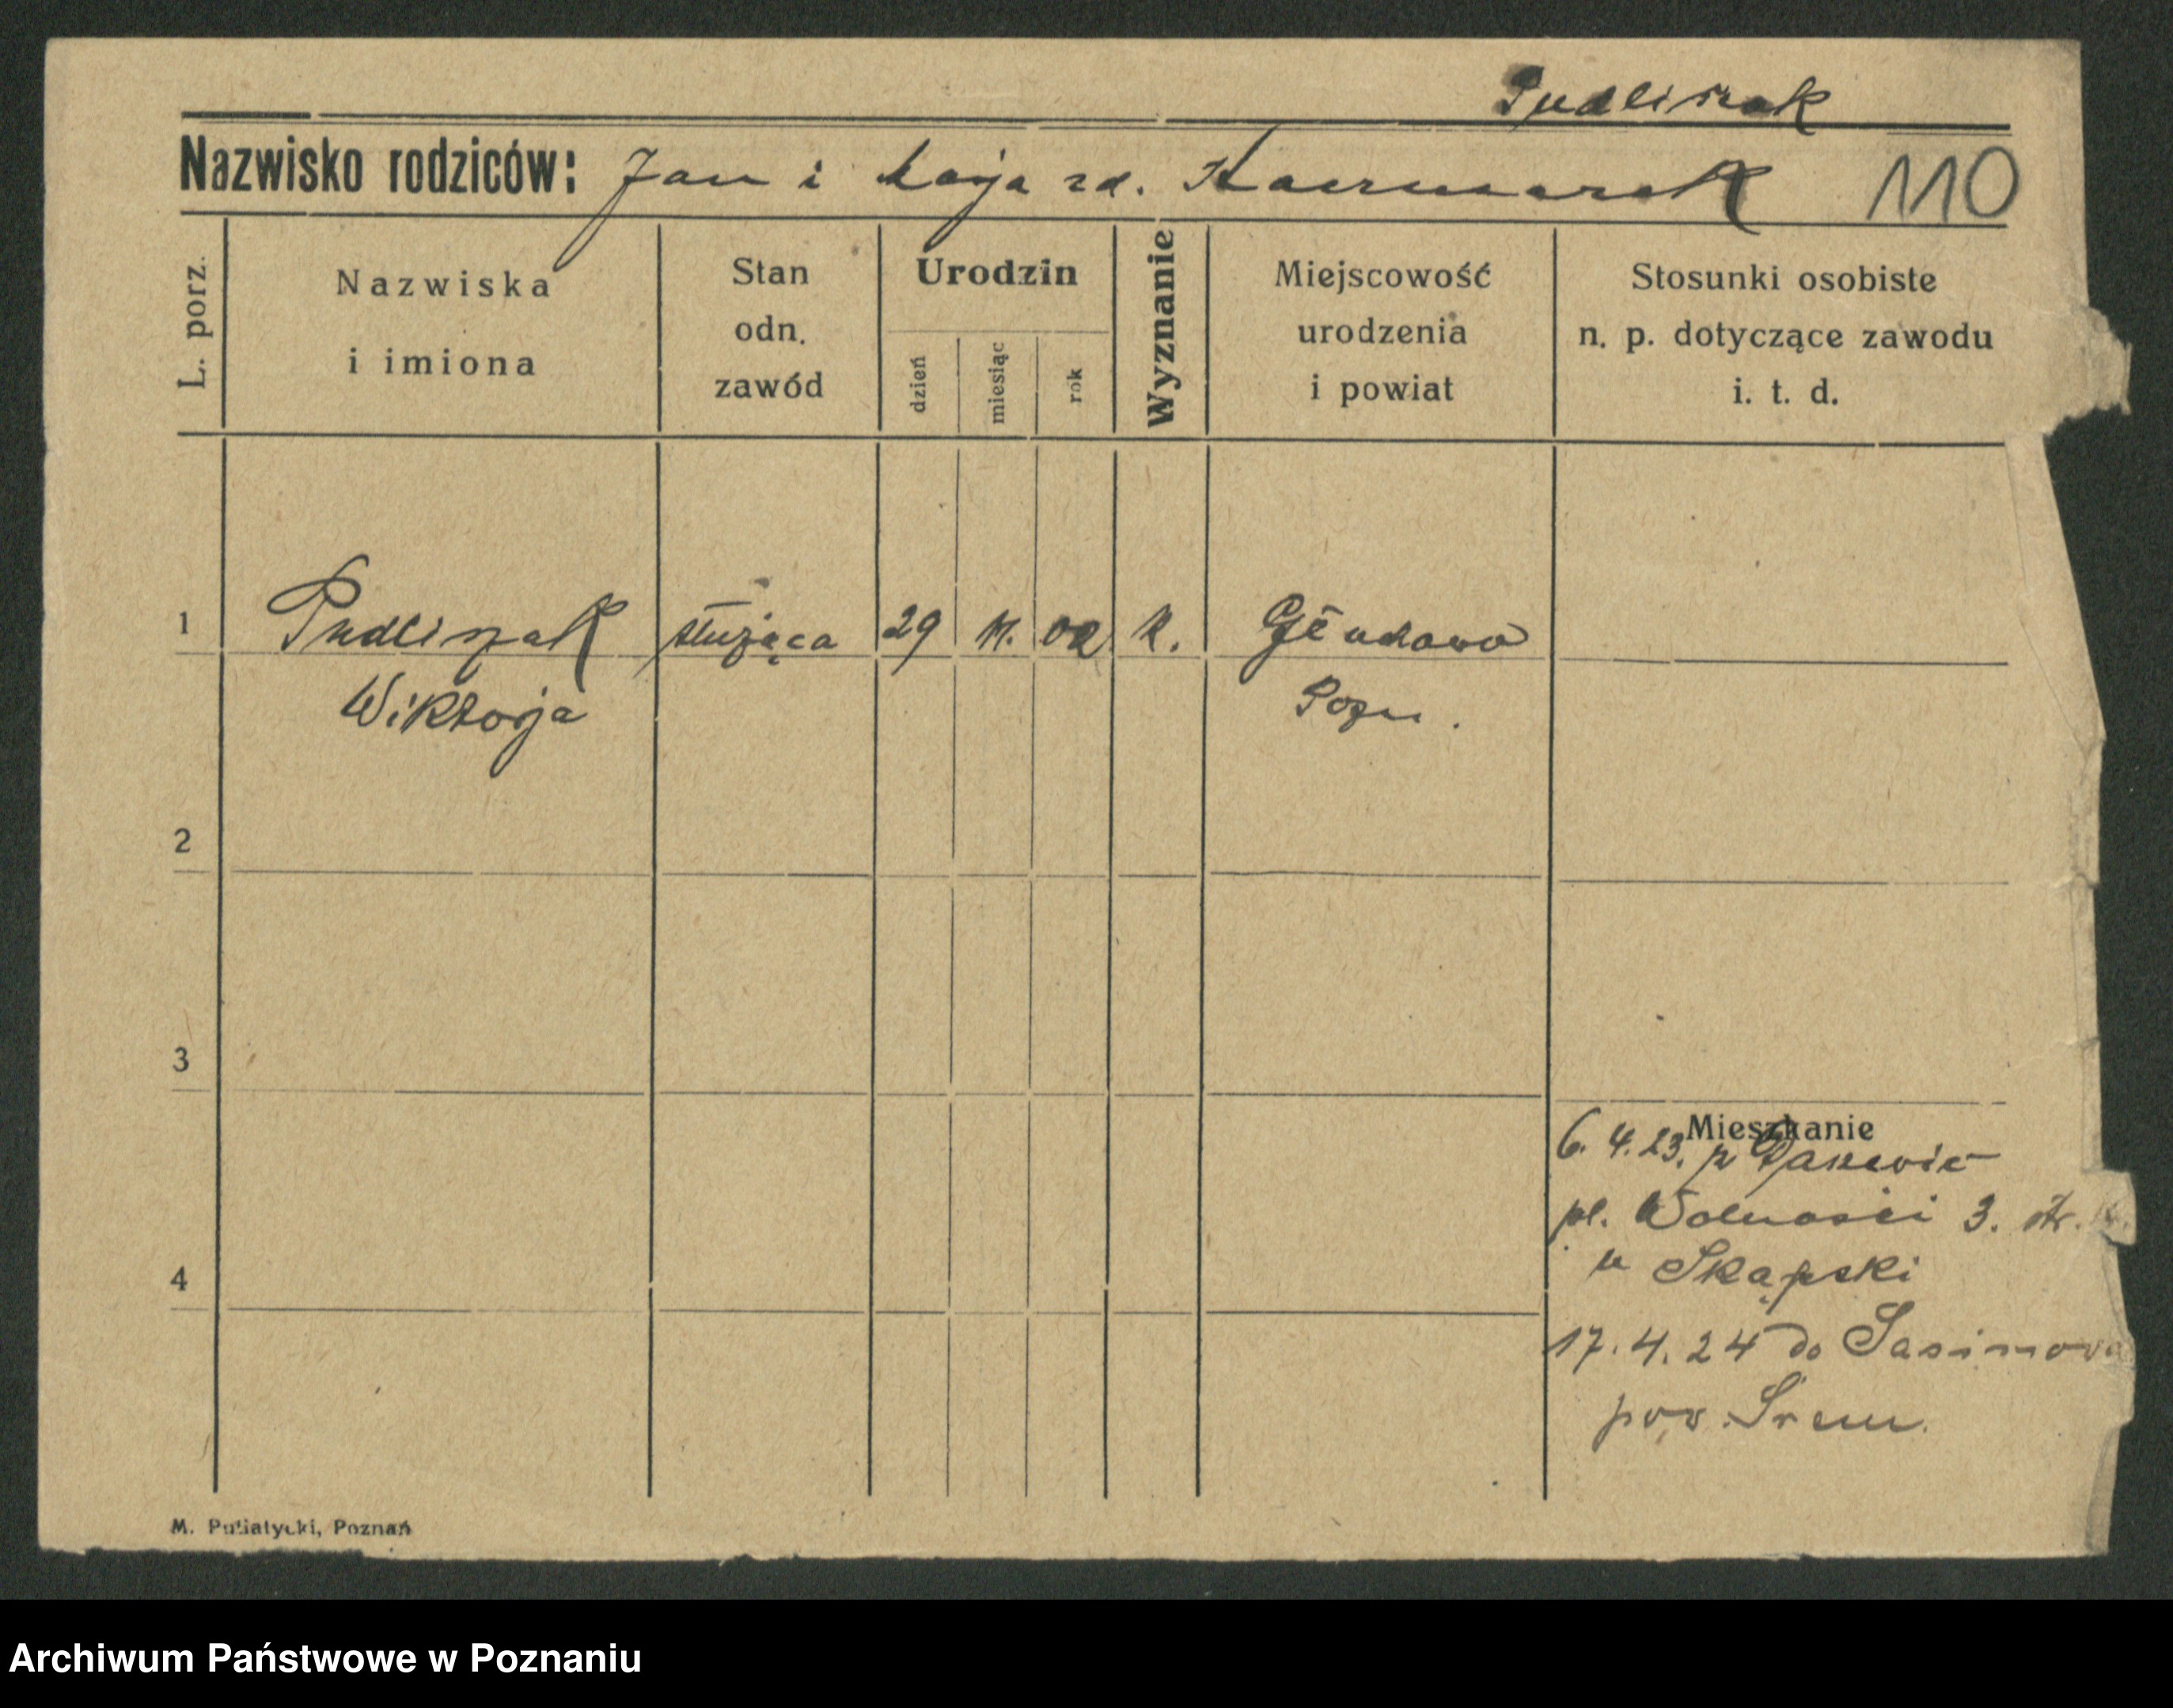 Pudliszak
Nazwisko rodziców: Jan i Marja zd. Kaczmarek 110
L. porz.
Nazwiska
i imiona
Stan
odn.
zawód
Urodzin
dzień
miesiąc
rok
Wyznanie
Miejscowość
urodzenia
i powiat
Stosunki osobiste
n. p. dotyczące zawodu
i. t. d.
1 Pudliszak służąca 29 11. 02 k.
Wiktorja Pozn.
2
3
4
Mieszkanie
6. 4. 23.
pl. Wolności 3.
u Skąpski
17. 4. 24 do Jasimowa
pow. Śrem.
M. Putiatycki, Poznań
Archiwum Państwowe w Poznaniu